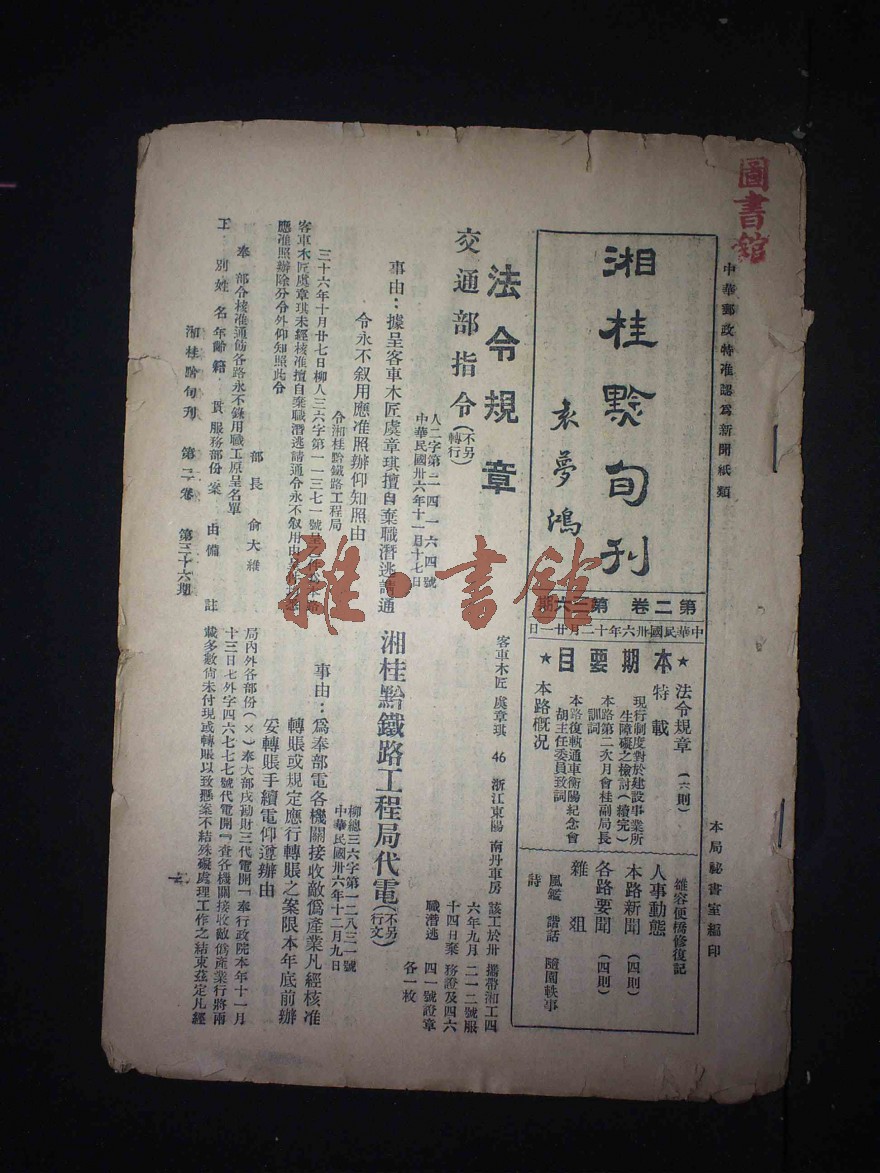 圖書館
中華郵政特准認爲新聞紙類
本局祕書室經印
湘桂黔旬刊
袁夢鴻
第二卷 第三六期
中華民國卅六年十二月廿一日
★本期要目★
法令規章(六則)
特載
現行制度對於建設事業所
生障礙之檢討(續完)
本路第二次月會桂副局長
訓詞
本路復軌通車衡陽紀念會
胡主任委員致詞
本路概况
雒容便橋修復記
人事動態
本路新聞(四則)
各路要聞(四則)
雜俎
風鑑 諧話 隨園軼事
詩
法令規章
交通部指令(不另轉行)
人二字第二一四一六四號
中華民國卅六年十一月十七日
事由:據呈客車木匠虞章琪擅自棄職潛逃請通
令永不叙用應准照辦仰知照由
令湘桂黔鐵路工程局
三十六年十月廿七日柳人三六字第一一三七一號呈
客車木匠虞章琪未經核准擅自棄職潛逃請通令永不叙用由
應准照辦除分令外仰知照此令
部長 俞大維
奉 部令核准通飭各路永不錄用職工原呈名單
工別 姓名 年齡 籍貫 服務部份 案由 備註
客車木匠 虞章琪 46 浙江東陽 南丹車房 該工於卅六年九月十四日棄職潛逃 攜帶湘工四二一二號服務證及四六四一號證章各一枚
湘桂黔鐵路工程局代電(不另行文)
柳總三六字第一二八三一號
中華民國卅六年十二月九日
事由:爲奉部電各機關接收敵僞產業凡經核准
轉賬或規定應行轉賬之案限本年底前辦
安轉賬手續電仰遵辦由
局內外各部份(×)奉大部戌勘財三代電開『奉行政院本年十一月
十三日七外字四六七七七號代電開『查各機關接收敵僞產業行將兩
載多數尙未付現或轉賬以致懸案不結殊礙處理工作之結束茲定凡經
湘桂黔旬刊 第二卷 第三十六期
雜·書館